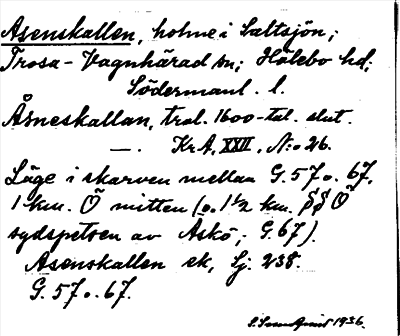 Asenskallen, holme i Saltsjön;
Trosa-Vagnhärad sn; Hölebo hd;
Södermanl. l.
Åsneskallan, trol. 1600-tal. slut.
—. KrA, XXII, N:o 26.
Läge i skarven mellan G. 57 o. 67.
1 km. Ö mitten (o. 1½ km. SSÖ
sydspetsen av Askö; G. 67).
Asenskallen ek, Sj. 238.
G. 57 o. 67.
1936.